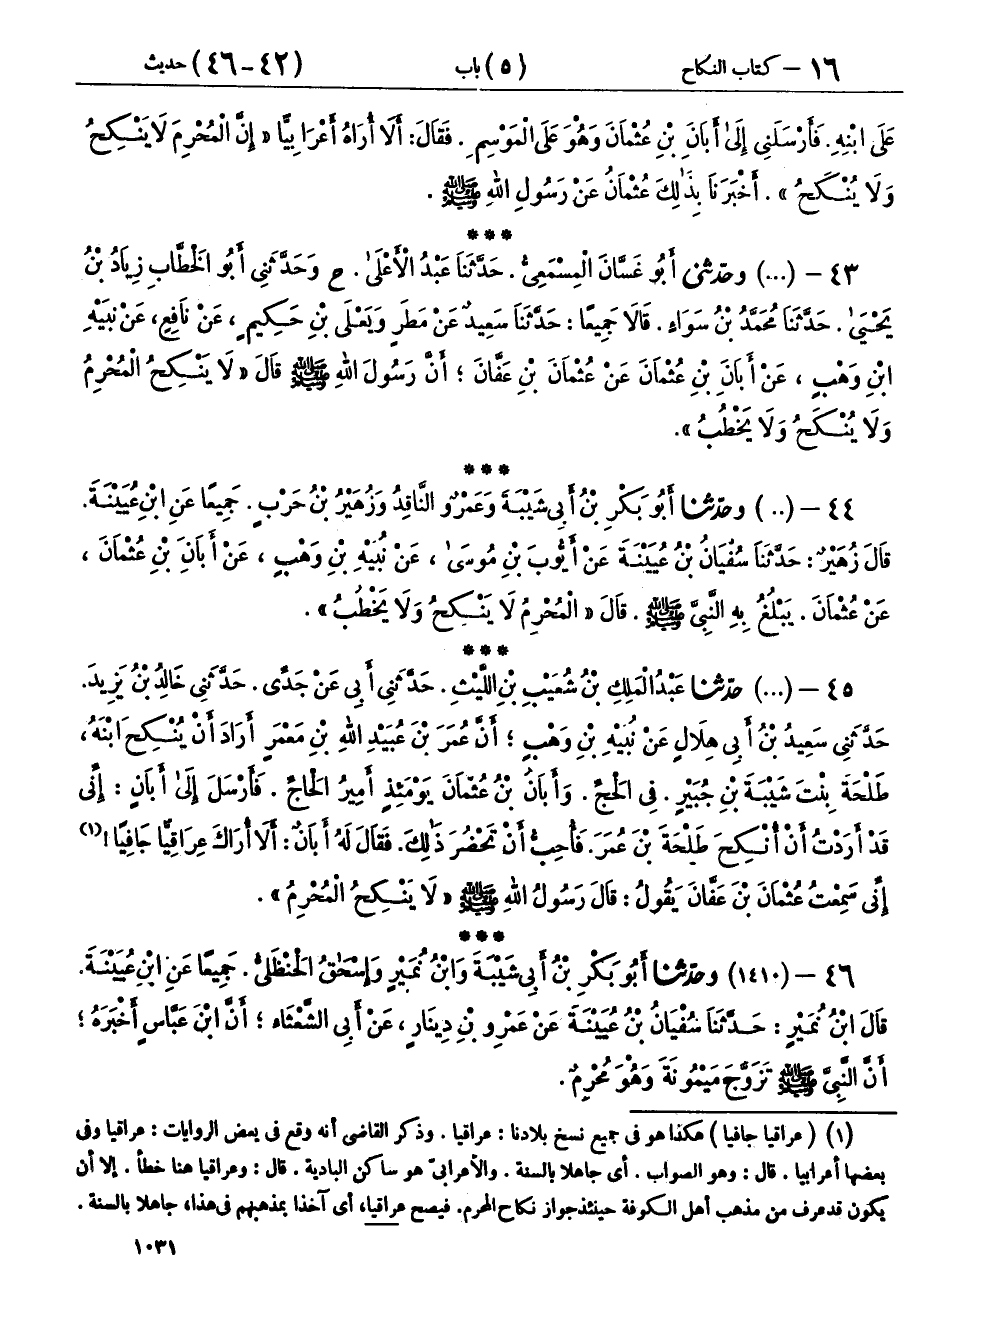 ١٦ – كتاب النكاح (٥) باب (٤٢-٤٦) حديث
عَلَى ابْنِهِ. فَأَرْسَلَنِي إِلَىٰ أَبَانَ بْنِ عُثْمَانَ وَهُوَ عَلَى الْمَوْسِمِ. فَقَالَ: أَلَا أُرَاهُ أَعْرَابِيًّا « إِنَّ الْمُحْرِمَ لَا يَنْكِحُ
وَلَا يُنْكَحُ » . أَخْبَرَنَا بِذَٰلِكَ عُثْمَانُ عَنْ رَسُولِ اللهِ ﷺ .
***
٤٣ – (...) وحدّثنى أَبُو غَسَّانَ الْمِسْمَعِىُّ . حَدَّثَنَا عَبْدُ الْأَعْلَىٰ . ح وَحَدَّثَنِي أَبُو الْخَطَّابِ زِيَادُ بْنُ
يَحْيَىٰ . حَدَّثَنَا مُحَمَّدُ بْنُ سَوَاءٍ . قَالَا جَمِيعًا : حَدَّثَنَا سَعِيدٌ عَنْ مَطَرٍ وَيَعْلَى بْنِ حَكِيمٍ ، عَنْ نَافِعٍ، عَنْ نُبَيْهِ
ابْنِ وَهْبٍ ، عَنْ أَبَانَ بْنِ عُثْمَانَ عَنْ عُثْمَانَ بْنِ عَفَّانَ ؛ أَنَّ رَسُولَ اللهِ ﷺ قَالَ « لَا يَنْكِحُ الْمُحْرِمُ
وَلَا يُنْكَحُ وَلَا يَخْطُبُ ».
***
٤٤ – (..) وحدّثنا أَبُو بَكْرِ بْنُ أَبِي شَيْبَةَ وَعَمْرٌو النَّاقِدُ وَزُهَيْرُ بْنُ حَرْبٍ . جَمِيعًا عَنِ ابْنِ عُيَيْنَةَ.
قَالَ زُهَيْرٌ : حَدَّثَنَا سُفْيَانُ بْنُ عُيَيْنَةَ عَنْ أَيُّوبَ بْنِ مُوسَىٰ ، عَنْ نُبَيْهِ بْنِ وَهْبٍ ، عَنْ أَبَانَ بْنِ عُثْمَانَ ،
عَنْ عُثْمَانَ . يَبْلُغُ بِهِ النَّبِيَّ ﷺ . قَالَ « الْمُحْرِمُ لَا يَنْكِحُ وَلَا يَخْطُبُ » .
***
٤٥ – (...) حدّثنا عَبْدُ الْمَلِكِ بْنُ شُعَيْبِ بْنِ اللَّيْثِ . حَدَّثَنِي أَبِي عَنْ جَدِّى . حَدَّثَنِي خَالِدُ بْنُ يَزِيدَ.
حَدَّثَنِي سَعِيدُ بْنُ أَبِي هِلَالٍ عَنْ نُبَيْهِ بْنِ وَهْبٍ ؛ أَنَّ عُمَرَ بْنَ عُبَيْدِ اللهِ بْنِ مَعْمَرٍ أَرَادَ أَنْ يُنْكِحَ ابْنَهُ،
طَلْحَةَ بِنْتَ شَيْبَةَ بْنِ جُبَيْرٍ . فِى الْحَجِّ . وَأَبَانُ بْنُ عُثْمَانَ يَوْمَئِذٍ أَمِيرُ الْحَاجِّ . فَأَرْسَلَ إِلَىٰ أَبَانٍ : إِنِّى
قَدْ أَرَدْتُ أَنْ أُنْكِحَ طَلْحَةَ بْنَ عُمَرَ. فَأُحِبُّ أَنْ تَحْضُرَ ذَٰلِكَ. فَقَالَ لَهُ أَبَانٌ: أَلَا أُرَاكَ عِرَاقِيًّا جَافِيًا !(١)
إِنِّى سَمِعْتُ عُثْمَانَ بْنَ عَفَّانَ يَقُولُ : قَالَ رَسُولُ اللهِ ﷺ « لَا يَنْكِحُ الْمُحْرِمُ » .
***
٤٦ – (١٤١٠) وحدّثنا أَبُو بَكْرِ بْنُ أَبِي شَيْبَةَ وَابْنُ نُمَيْرٍ وَإِسْحَٰقُ الْحَنْظَلِىُّ . جَمِيعًا عَنِ ابْنِ عُيَيْنَةَ.
قَالَ ابْنُ نُمَيْرٍ : حَدَّثَنَا سُفْيَانُ بْنُ عُيَيْنَةَ عَنْ عَمْرِو بْنِ دِينَارٍ ، عَنْ أَبِي الشَّعْثَاءِ ؛ أَنَّ ابْنَ عَبَّاسٍ أَخْبَرَهُ ؛
أَنَّ النَّبِيَّ ﷺ تَزَوَّجَ مَيْمُونَةَ وَهُوَ مُحْرِمٌ .
(١) ( عراقيا جافيا ) هكذا هو فى جميع نسخ بلادنا : عراقيا . وذكر القاضى أنه وقع فى بعض الروايات : عراقيا وفى
بعضها أعرابيا . قال : وهو الصواب . أى جاهلا بالسنة . والأعرابىّ هو ساكن البادية . قال : وعراقيا هنا خطأ . إلا أن
يكون قد عرف من مذهب أهل الكوفة حينئذ جواز نكاح المحرم. فيصح عراقيا، أى آخذا بمذهبهم فى هذا، جاهلا بالسنة .
١٠٣١